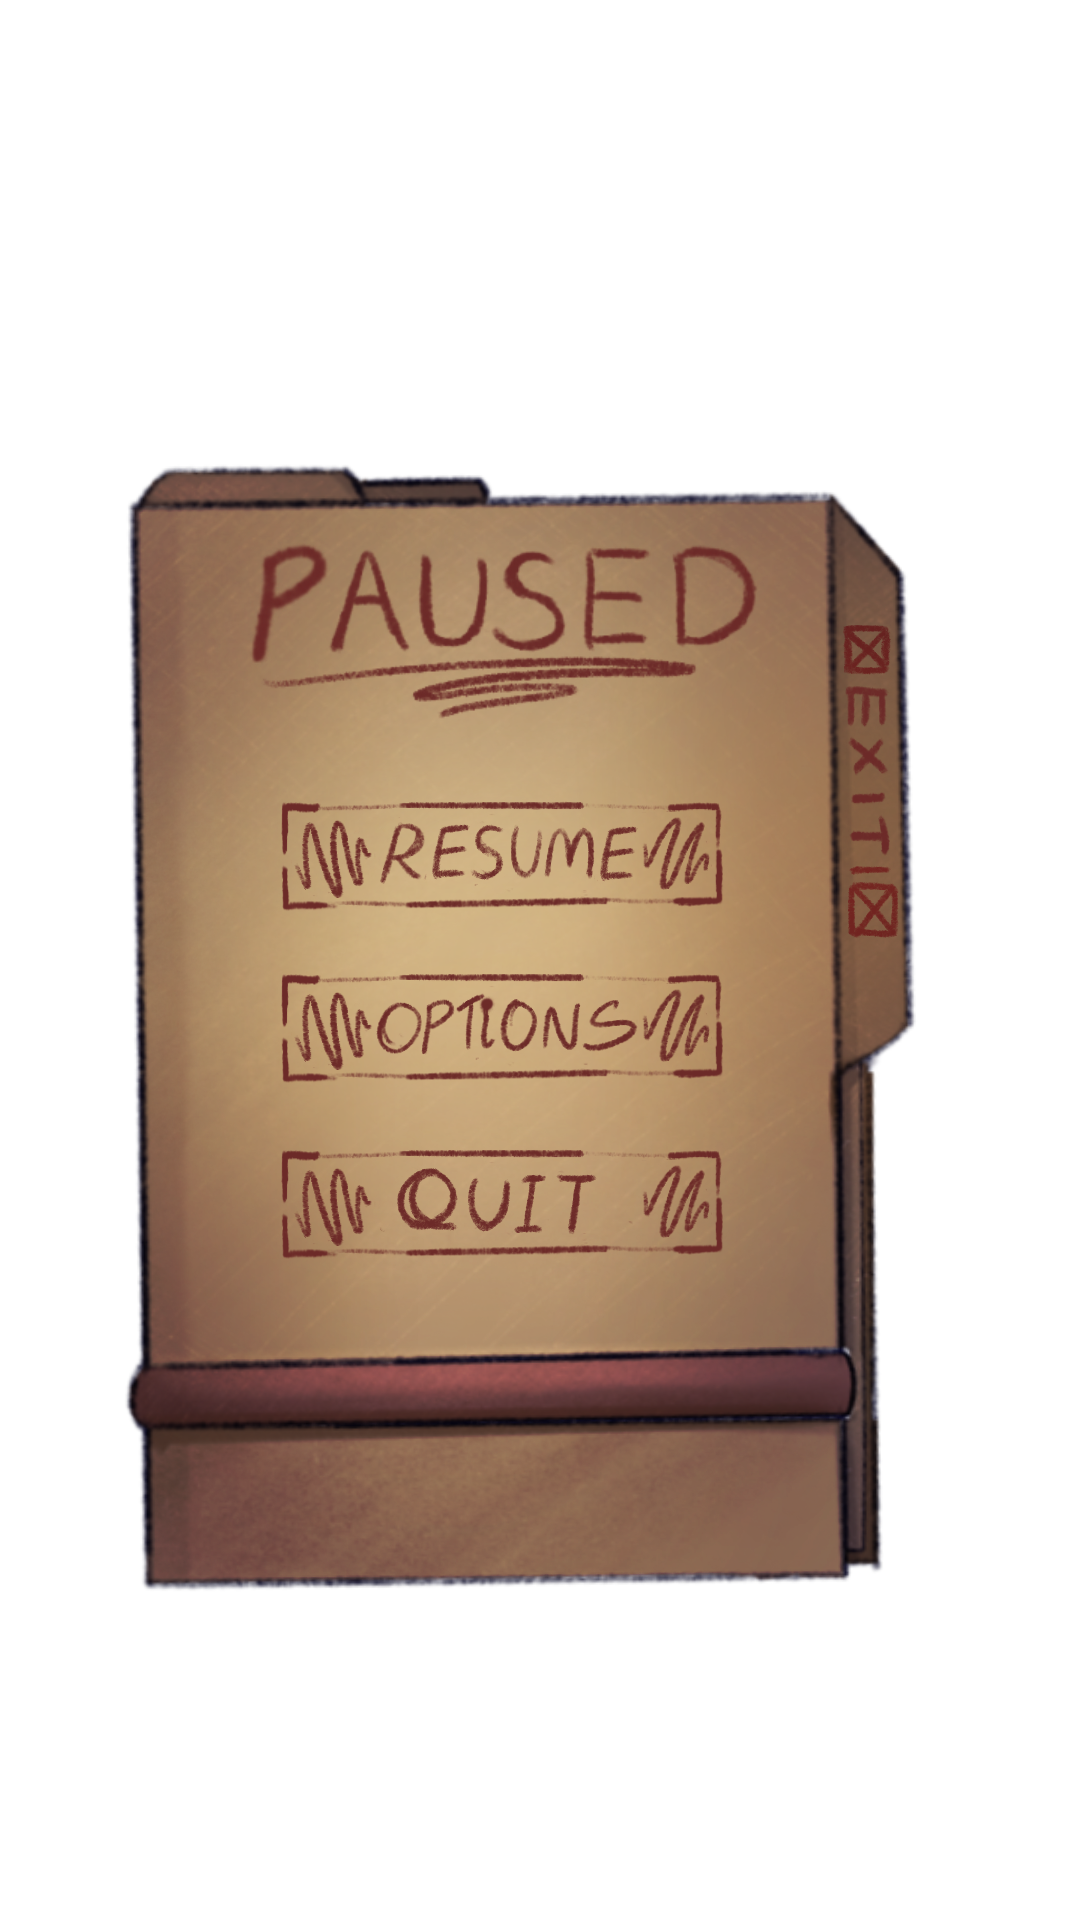 PAUSED
RESUME
OPTIONS
QUIT
EXIT